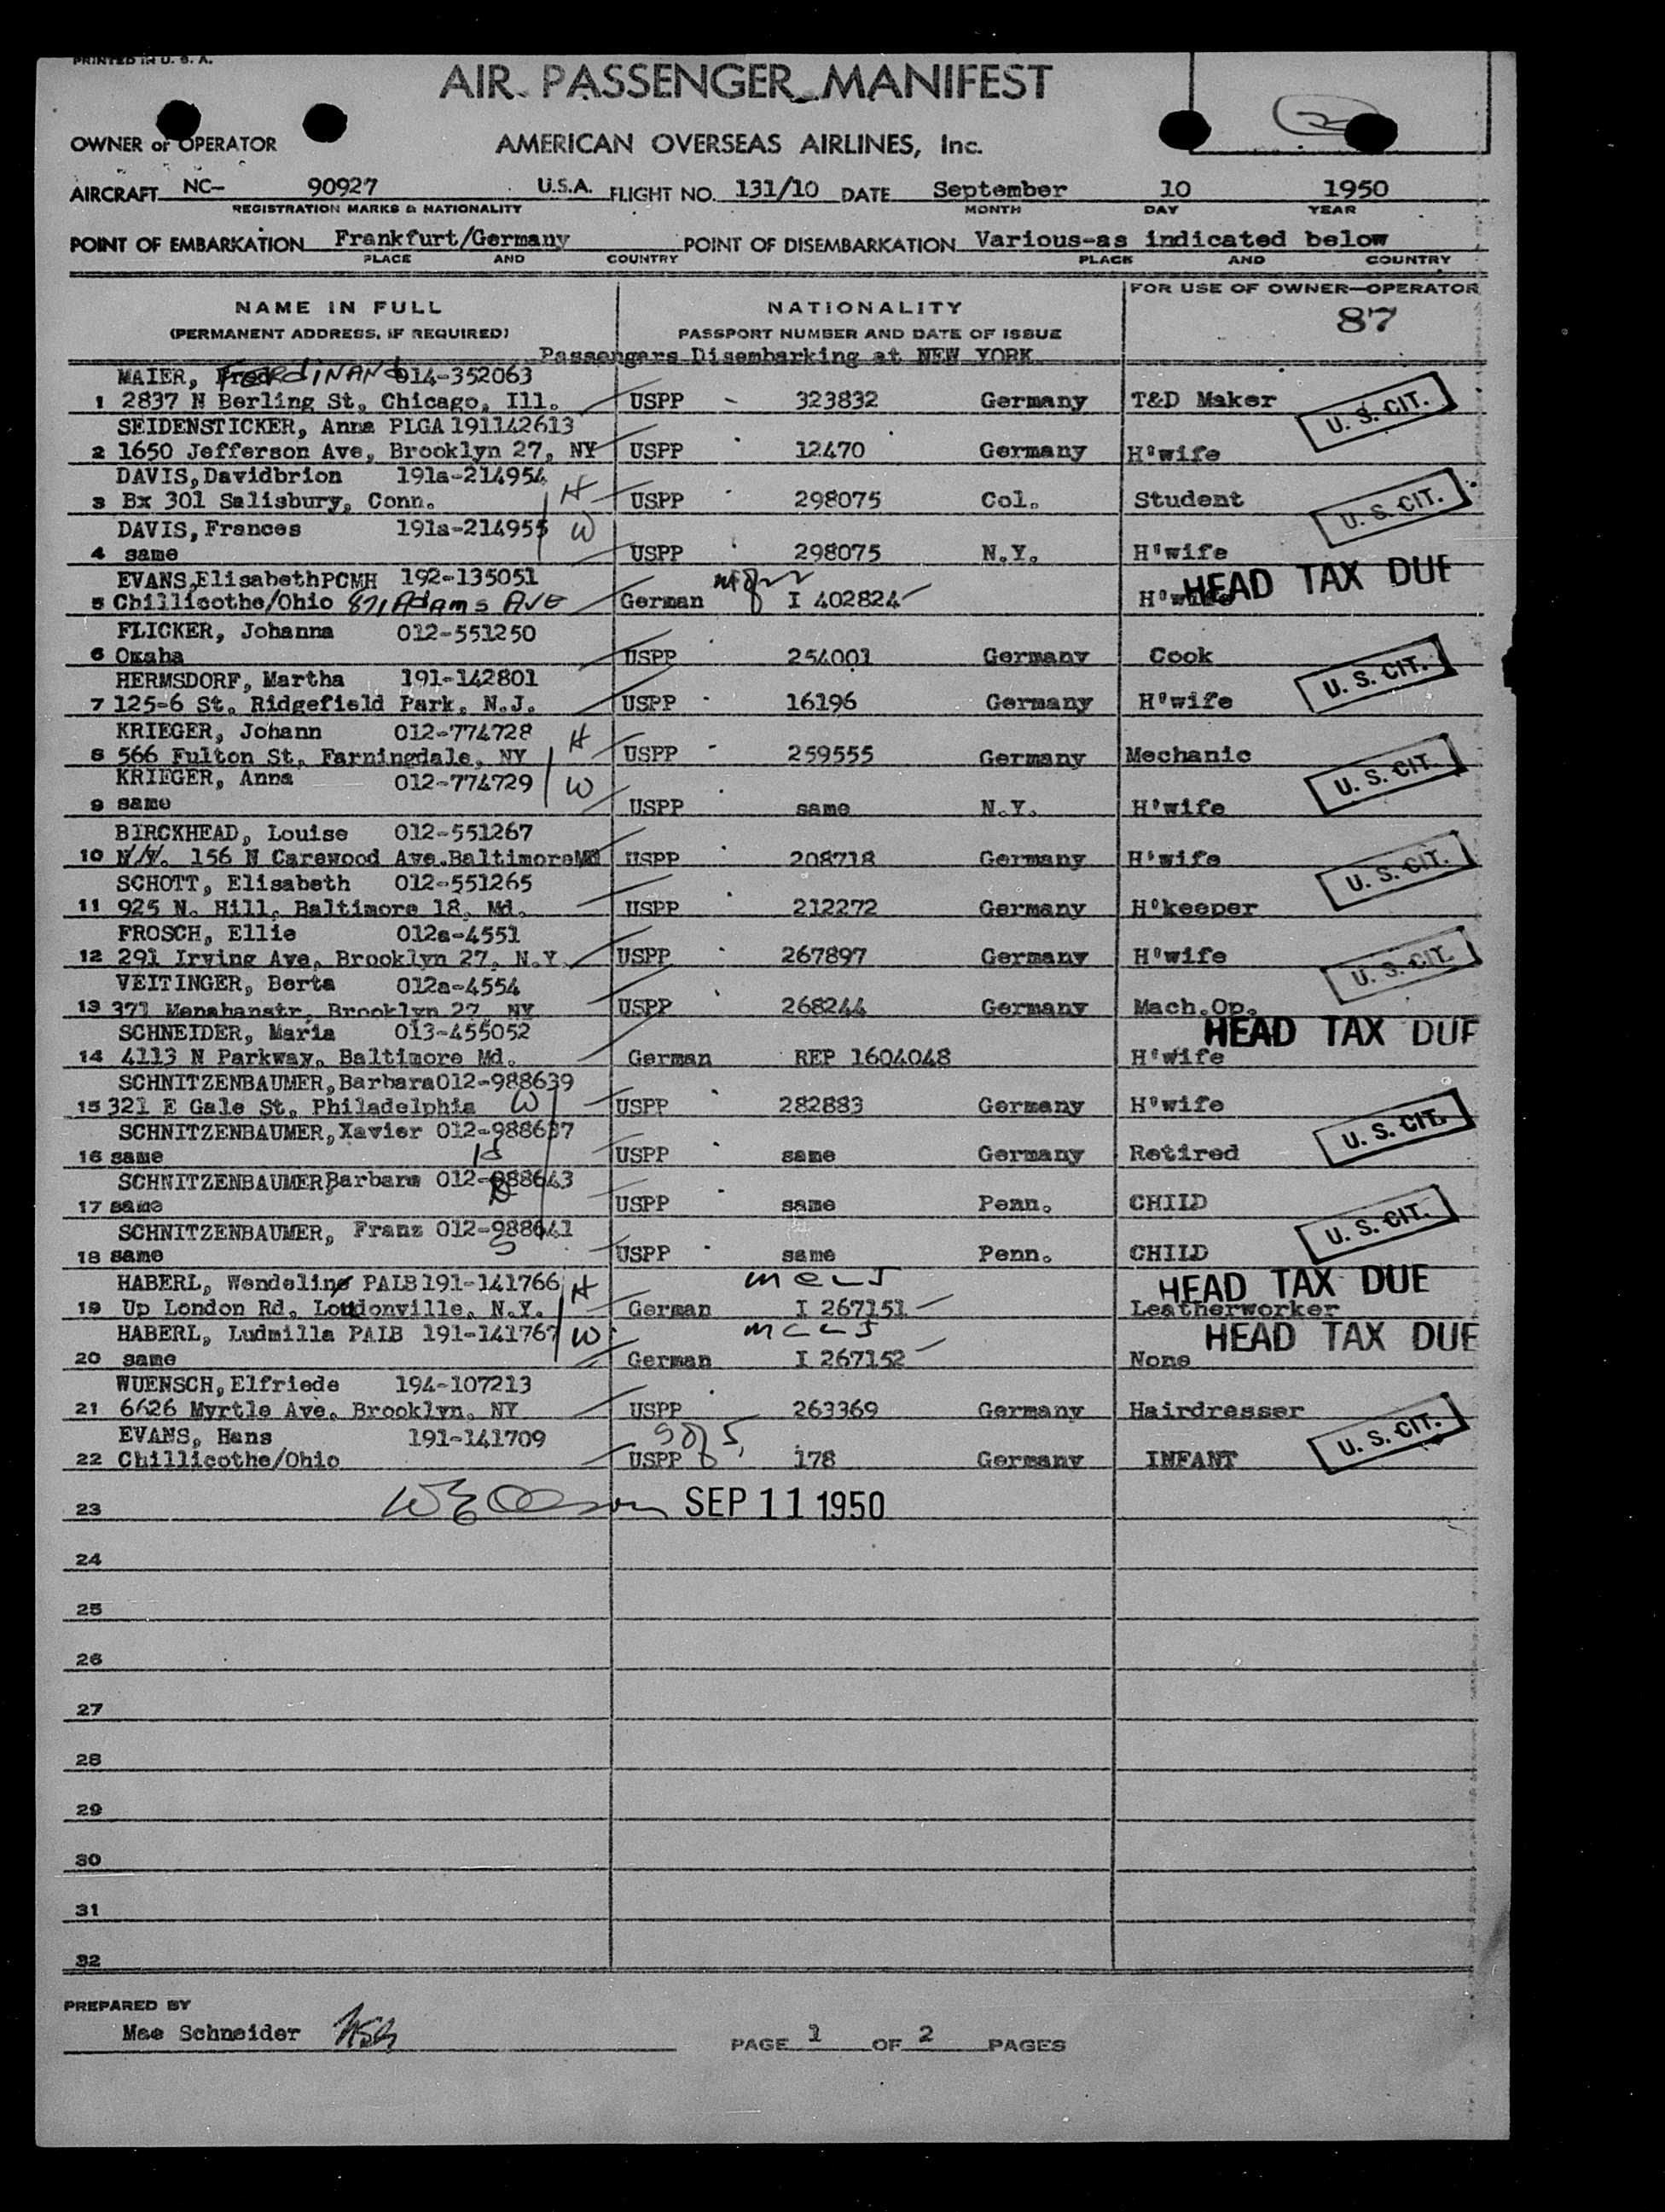 PRINTED IN U. S. A.
AIR PASSENGER MANIFEST
OWNER or OPERATOR AMERICAN OVERSEAS AIRLINES, Inc.
AIRCRAFT NC- 90927 U.S.A. FLIGHT NO. 131/10 DATE September 10 1950
REGISTRATION MARKS & NATIONALITY MONTH DAY YEAR
POINT OF EMBARKATION Frankfurt/Germany POINT OF DISEMBARKATION Various-as indicated below
PLACE AND COUNTRY PLACE AND COUNTRY
NAME IN FULL NATIONALITY FOR USE OF OWNER—OPERATOR
(PERMANENT ADDRESS, IF REQUIRED) PASSPORT NUMBER AND DATE OF ISSUE 87
Passengers Disembarking at NEW YORK
MAIER, FERDINAND 014-352063
1 2837 N Berling St, Chicago, Ill. USPP - 323832 Germany T&D Maker U. S. CIT.
SEIDENSTICKER, Anna PLGA 191142613
2 1650 Jefferson Ave, Brooklyn 27, NY USPP 12470 Germany H'wife
DAVIS, Davidbrion 191a-214954
3 Bx 301 Salisbury, Conn. H USPP 298075 Col. Student U. S. CIT.
DAVIS, Frances 191a-214955 W
4 same USPP 298075 N.Y. H'wife
EVANS, Elisabeth PCMH 192-135051 HEAD TAX DUE
5 Chillicothe/Ohio 871 Adams AVE German I 402824 H'wife
FLICKER, Johanna 012-551250
6 Omaha USPP 254001 Germany Cook U. S. CIT.
HERMSDORF, Martha 191-142801
7 125-6 St. Ridgefield Park, N.J. USPP 16196 Germany H'wife
KRIEGER, Johann 012-774728 H
8 566 Fulton St, Farningdale, NY USPP 259555 Germany Mechanic U. S. CIT
KRIEGER, Anna 012-774729 W
9 same USPP same N.Y. H'wife
BIRCKHEAD, Louise 012-551267
10 N/Y. 156 N Carewood Ave. Baltimore Md USPP 208718 Germany H'wife U. S. CIT.
SCHOTT, Elisabeth 012-551265
11 925 N. Hill, Baltimore 18, Md. USPP 212272 Germany H'keeper
FROSCH, Ellie 012a-4551
12 291 Irving Ave, Brooklyn 27, N.Y. USPP 267897 Germany H'wife U. S. CIT.
VEITINGER, Berta 012a-4554
13 371 Menahanstr, Brooklyn 27, NY USPP 268244 Germany Mach.Op.
SCHNEIDER, Maria 013-455052 HEAD TAX DUE
14 4113 N Parkway, Baltimore Md. German REP 1604048 H'wife
SCHNITZENBAUMER, Barbara 012-988639
15 321 E Gale St, Philadelphia W USPP 282883 Germany H'wife
SCHNITZENBAUMER, Xavier 012-988637 U. S. CIT.
16 same H USPP same Germany Retired
SCHNITZENBAUMER, Barbara 012-988643
17 same USPP same Penn. CHILD
SCHNITZENBAUMER, Franz 012-988641 U. S. CIT.
18 same S USPP same Penn. CHILD
HABERL, Wendeling PALB 191-141766 H HEAD TAX DUE
19 Up London Rd, Loudonville, N.Y. German I 267151 Leatherworker
HABERL, Ludmilla PALB 191-141767 W HEAD TAX DUE
20 same German I 267152 None
WUENSCH, Elfriede 194-107213
21 6626 Myrtle Ave, Brooklyn, NY USPP 263369 Germany Hairdresser
EVANS, Hans 191-141709 U. S. CIT.
22 Chillicothe/Ohio USPP 178 Germany INFANT
23 SEP 11 1950
24
25
26
27
28
29
30
31
32
PREPARED BY
Mae Schneider
PAGE 1 OF 2 PAGES